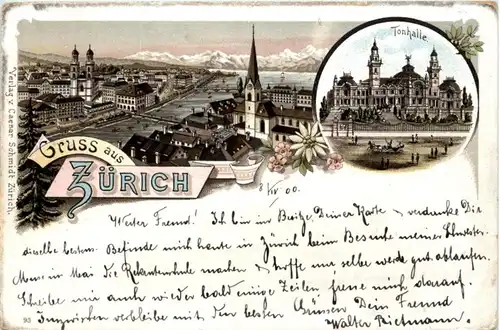 Tonhalle
Verlag v. Caesar Schmidt Zürich.
Gruss aus
ZÜRICH
8/IV 00.
Werter Freund! Ich bin im Besitze Deiner Karte & verdanke Dir
dieselbe bestens. Befinde mich heute in Zürich beim Besuche meines Schwester.
Muss im Mai die Rekrutenschule machen & hoffe sie selbe werde gut ablaufen.
Schreibe mir auch wieder bald einige Zeilen, freue mich darauf.
Inzwischen verbleibe mit den besten Grüssen Dein Freund
Walter
93